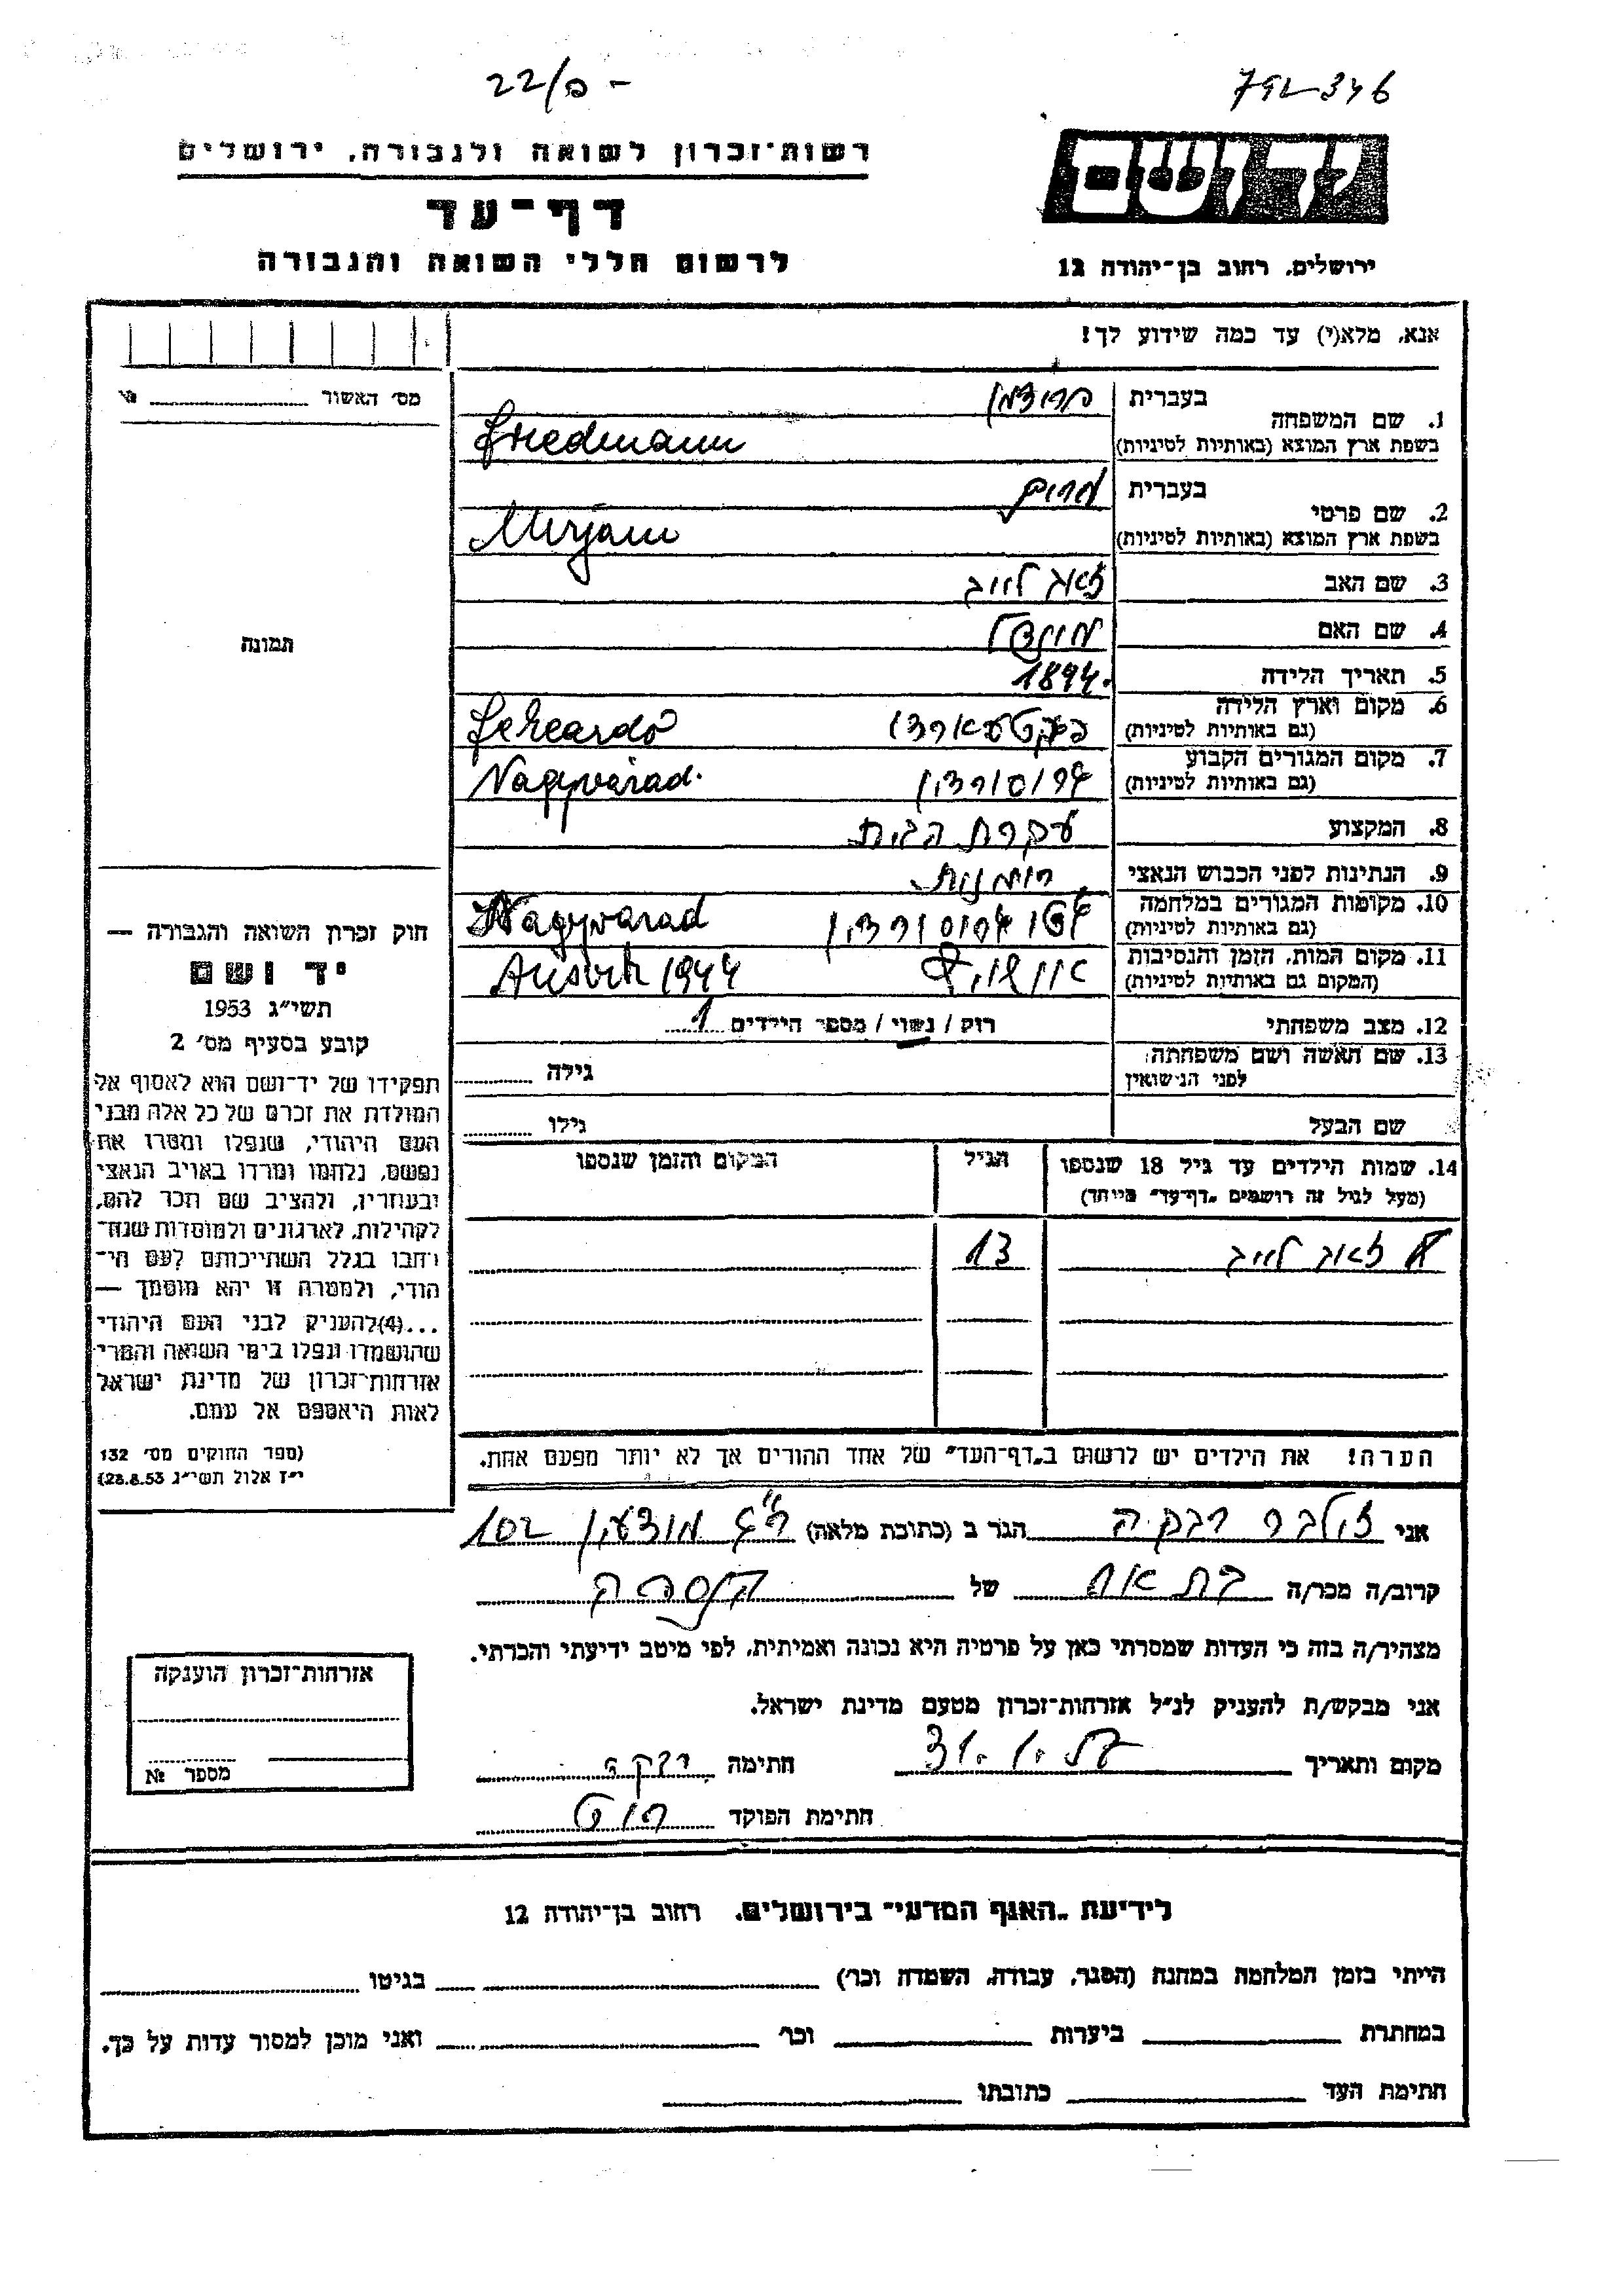 22/פ -
792346
רשות־זכרון לשואה ולגבורה, ירושלים
דף־עד
לרשום חללי השואה והגבורה
ידושם
ירושלים, רחוב בן־יהודה 12
אנא, מלא(י) עד כמה שידוע לך!
מס' האשור
1. שם המשפחה
בעברית פרידמן
בשפת ארץ המוצא (באותיות לטיניות) Friedmann
2. שם פרטי
בעברית מרים
בשפת ארץ המוצא (באותיות לטיניות) Mirjam
3. שם האב זאב לייב
4. שם האם
5. תאריך הלידה 1894.
6. מקום וארץ הלידה
(גם באותיות לטיניות) Feketeardó
7. מקום המגורים הקבוע
(גם באותיות לטיניות) Nagyvárad.
8. המקצוע עקרת הבית
9. הנתינות לפני הכבוש הנאצי רומנית
10. מקומות המגורים במלחמה
(גם באותיות לטיניות) גטו גרוסורדין Nagyvarad
11. מקום המות, הזמן והנסיבות
(המקום גם באותיות לטיניות) אושויץ 1944
12. מצב משפחתי רוק / נשוי / מספר הילדים 1
13. שם האשה ושם משפחתה
לפני הנישואין גילה
שם הבעל גילו
תמונה
חוק זכרון השואה והגבורה —
יד ושם
תשי״ג 1953
קובע בסעיף מס׳ 2
תפקידו של יד־ושם הוא לאסוף אל
המולדת את זכרם של כל אלה מבני
העם היהודי, שנפלו ומסרו את
נפשם, נלחמו ומרדו באויב הנאצי
ובעוזריו, ולהציב שם וזכר להם,
לקהילות, לארגונים ולמוסדות שנח־
רבו בגלל השתייכותם לעם הי־
הודי, ולמטרה זו יהא מוסמך —
...(4)להעניק לבני העם היהודי
שהושמדו ונפלו בימי השואה והמרי
אזרחות־זכרון של מדינת ישראל
לאות היאספם אל עמם.
(ספר החוקים מס׳ 132
י״ז אלול תשי״ג 28.8.53)
14. שמות הילדים עד גיל 18 שנספו
(מעל לגיל זה רושמים „דף־עד״ מיוחד)
הגיל
המקום והזמן שנספו
זאב לייב 13
הערה! את הילדים יש לרשום ב„דף־העד״ של אחד ההורים אך לא יותר מפעם אחת.
אני זילבר רבקה הגר ב (כתובת מלאה) מודעין
קרוב/ה מכר/ה בת אח של הנספה
מצהיר/ה בזה כי העדות שמסרתי כאן על פרטיה היא נכונה ואמיתית, לפי מיטב ידיעתי והכרתי.
אני מבקש/ת להעניק לנ״ל אזרחות־זכרון מטעם מדינת ישראל.
מקום ותאריך חתימה רבקה
חתימת הפוקד
אזרחות־זכרון הוענקה
מספר №
לידיעת „האגף המדעי״ בירושלים, רחוב בן־יהודה 12
הייתי בזמן המלחמה במחנה (הסגר, עבודה, השמדה וכו׳) בגיטו
במחתרת ביערות וכו׳ ואני מוכן למסור עדות על כך.
חתימת העד כתובתו